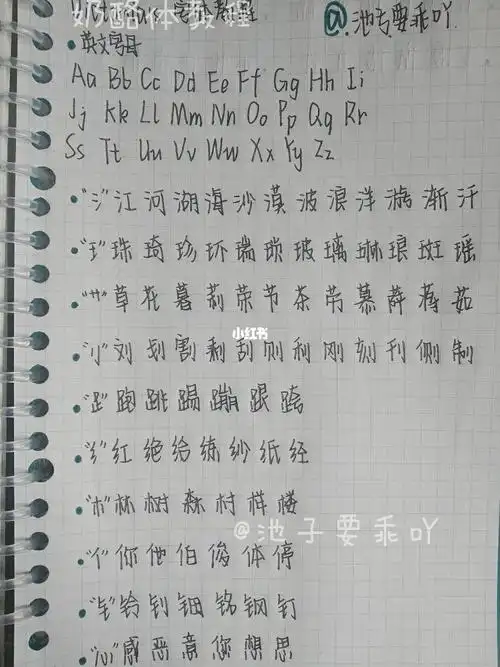 奶酪体教程
@.池子要乖吖
英文字母
Aa Bb Cc Dd Ee Ff Gg Hh Ii
Jj Kk Ll Mm Nn Oo Pp Qq Rr
Ss Tt Uu Vv Ww Xx Yy Zz
"氵"江 河 湖 海 沙 漠 波 浪 洋 漏 渐 汗
"王"珠 琦 珍 环 瑞 琐 玻 璃 琳 琅 斑 瑶
"艹"草 花 暮 莉 荣 节 茶 荣 慕 薛 蒋 茹
小红书
"刂"刘 划 割 剩 刮 则 利 刚 刻 刊 侧 制
"𧾷"跑 跳 踢 蹦 跟 跨
"纟"红 绝 给 练 纱 纸 经
"木"林 树 森 村 样 楼
@池子要乖吖
"亻"你 他 伯 俊 体 停
"钅"铃 钊 钿 铭 钢 钉
"心"感 恶 意 您 想 思